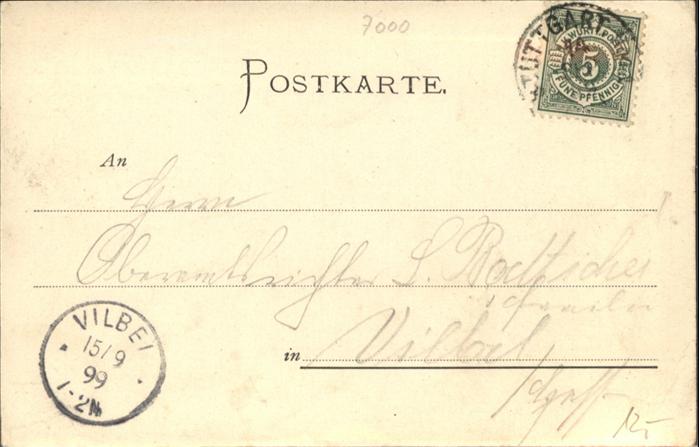 7000
STUTTGART
K. WÜRTT. POST
5
FÜNF PFENNIG
POSTKARTE.
An
Herrn
Oberamtsrichter L. Boettscher
in Vilbel
VILBEL
15/9
99
1-2N
12,-